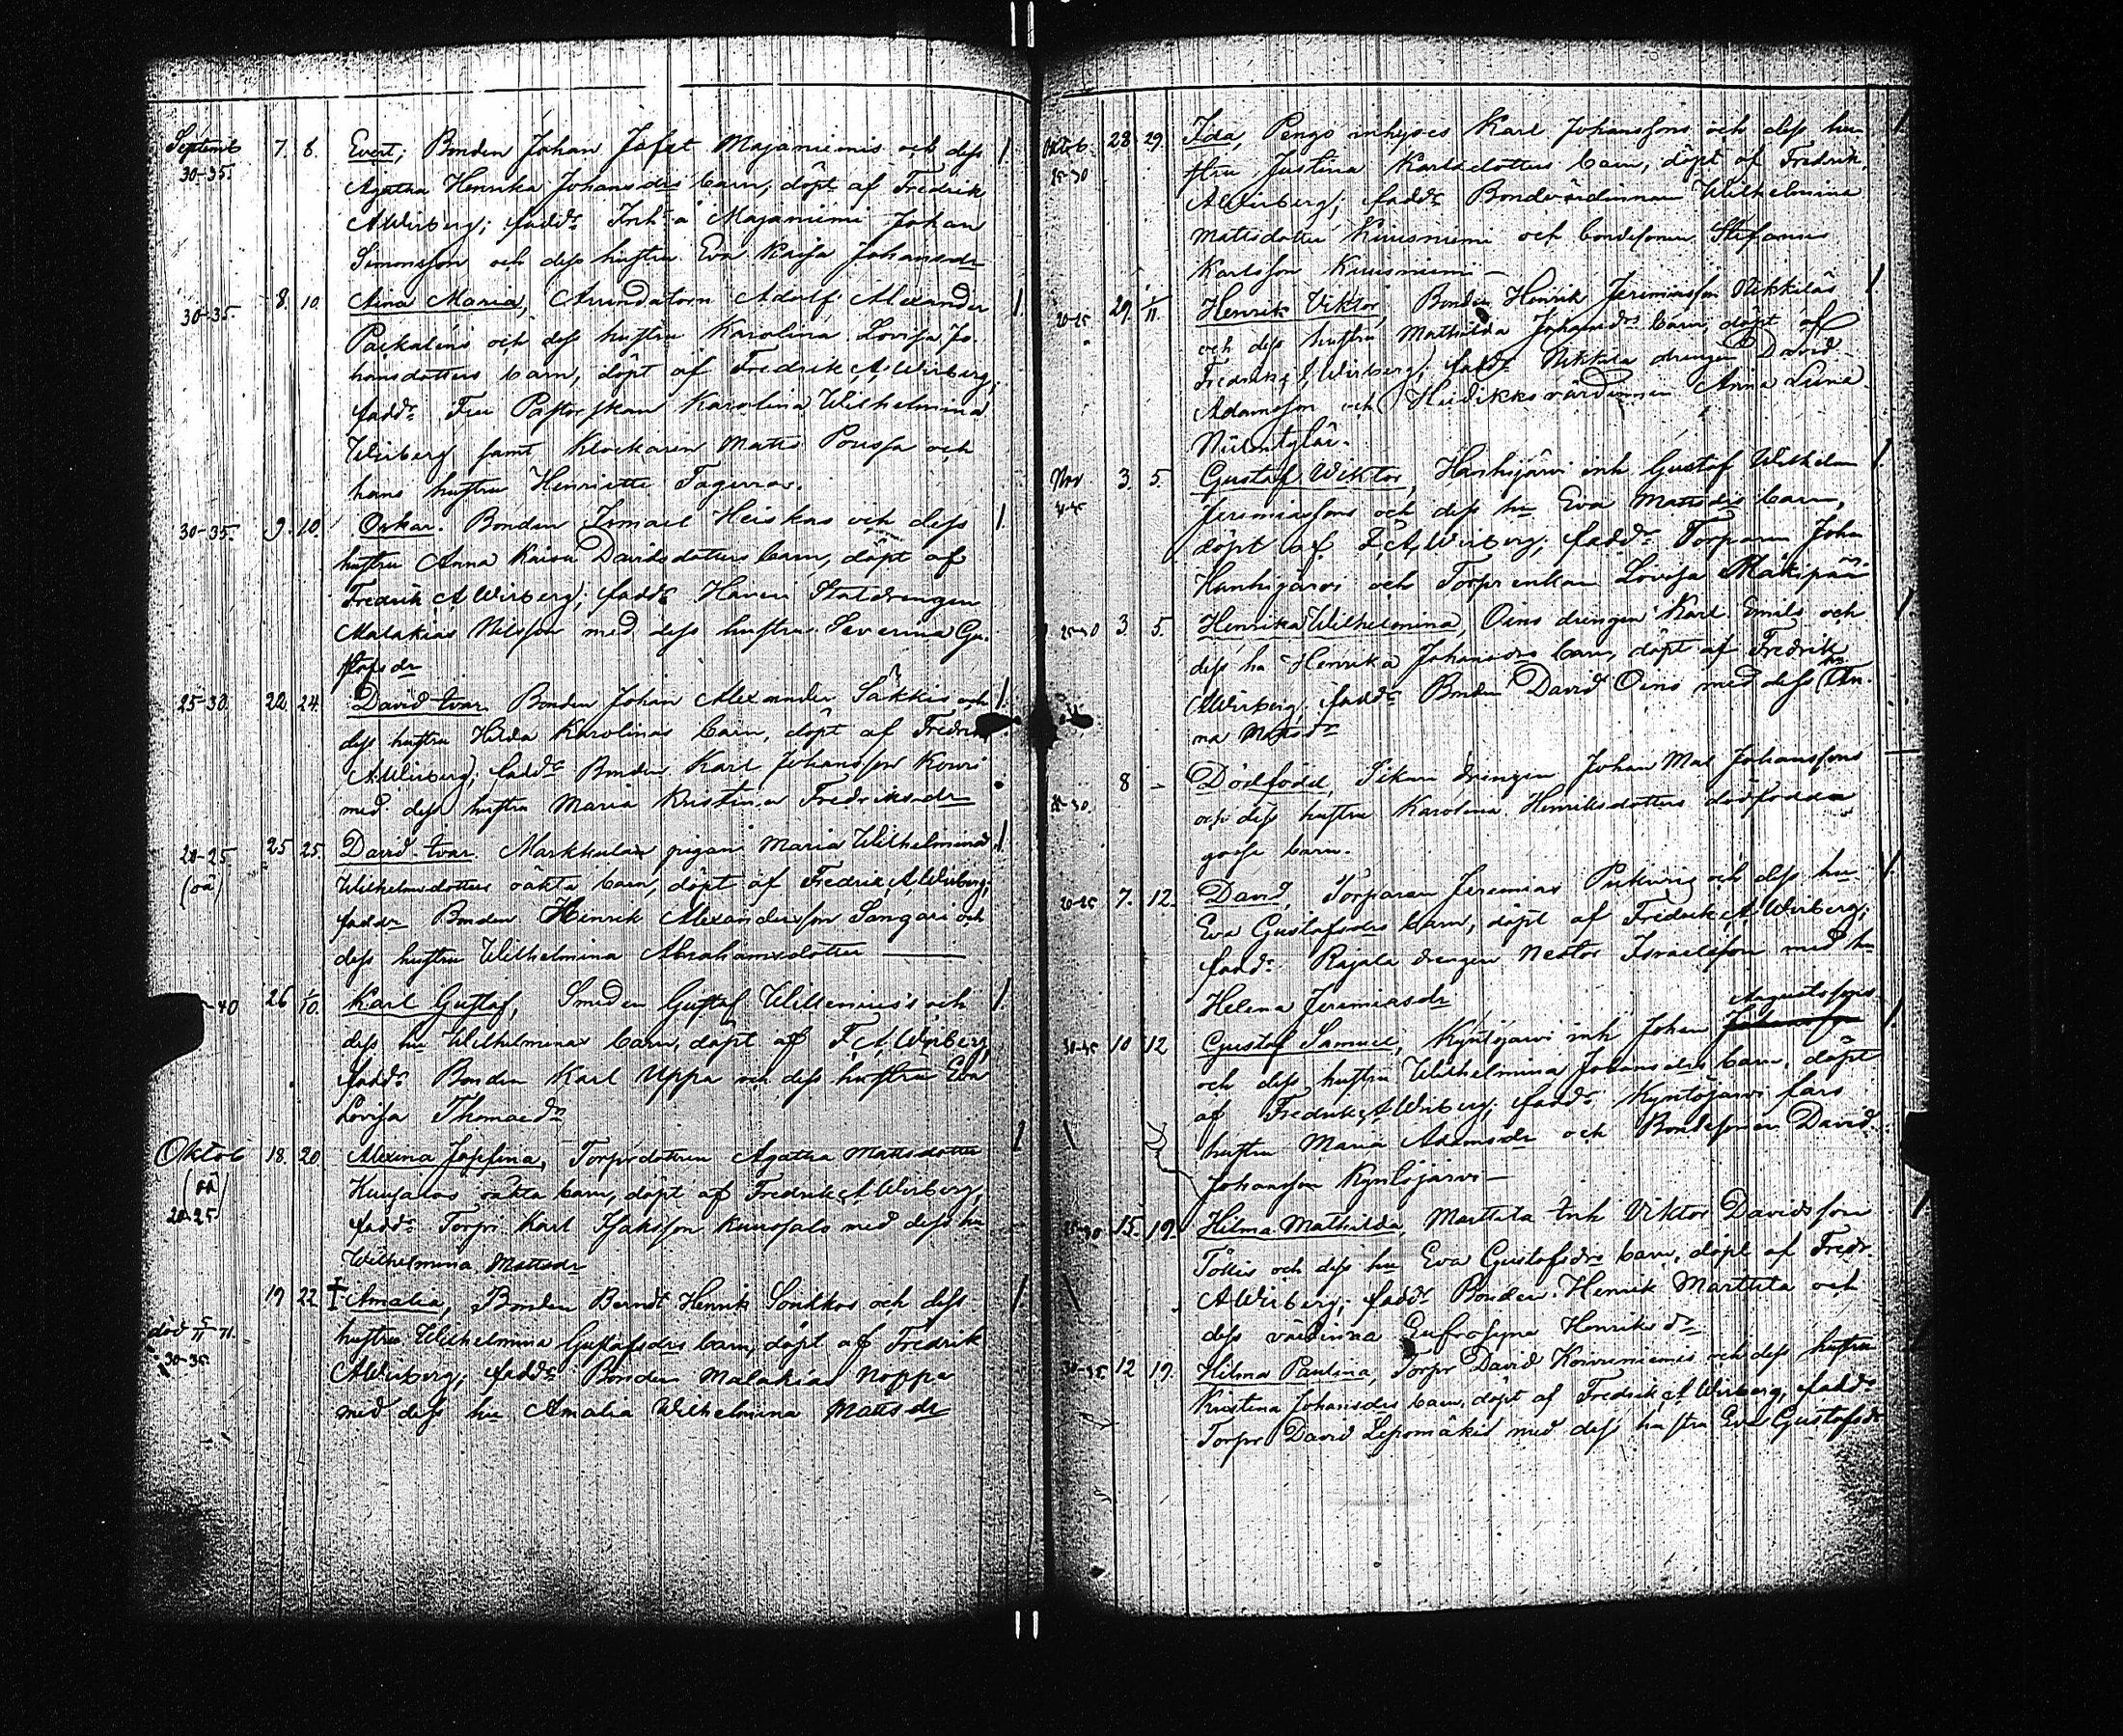 Septemb 7. 8. Evert; Bonden Johan Jafet Majaniemis och dess
30-35. Agatha Henrika Johansdrs barn, döpt af Fredrik
A Wirberg; fadd: Inh. å Majaniemi Johan
Simonsson och dess hustru Eva Kaisa Johansdr
30-35. 8. 10. Aina Maria, Arrendatorn Adolf Alexander
och dess hustru Karolina Lovisa Jo-
hansdotters barn, döpt af Fredrik A Wirberg,
fadd: Fru Pastorskan Karolina Wilhelmina
Wirberg samt Klockaren Matts och
hans hustru Henriette Fagerros.
30-35. 9. 10. Oskar. Bonden Ismael Heiskas och dess
hustru Anna Kaisa Davidsdotters barn, döpt af
Fredrik A Wirberg; fadd: Statdrengen
Malakias Nilsson med dess hustru Severina Gu-
stafsdr
25-30. 22. 24. David Ivar Bonden Johan Alexander Säkkis och
dess hustru Hilda Karolinas barn, döpt af Fredrik
A Wirberg; fadd: Bonden Karl Johansson
med dess hustru Maria Kristina Fredriksdr
20-25 25 25. David Ivar. Markkulan pigan Maria Wilhelmina
(oä) Wilhelmsdotters oäkta barn, döpt af Fredrik A Wirberg;
fadd: Bonden Henrik Alexandersson Sangari och
dess hustru Wilhelmina Abrahamsdotter
-40 26 1/10. Karl Gustaf, Smeden Gustaf och
dess hu Wilhelminas barn, döpt af F. A. Wirberg,
fadd: Bonden Karl Uppa och dess hustru Eva
Lovisa Thomasdr
Oktob 18. 20 Alexina Josefina, Torpredottren Agatha Mattsdotter
(oä) oäkta barn, döpt af Fredrik A Wirberg,
20-25 fadd: Torpr Karl Isaksson med dess hu
Wilhelmina Mattsdr
19 22 † Amalia, Bonden Berndt Henrik och dess
död 5/11 71. hustru Wilhelmina Gustafsdrs barn, döpt af Fredrik
30-35. A Wirberg; fadd: Bonden Malakias Noppa
med dess hu Amalia Wilhelmina Mattsdr
Oktob. 28 29. Ida, Pengo inhyses Karl Johanssons och dess hu-
25-30 stru Justina Karlsdotters barn, döpt af Fredrik
A Wirberg; fadd: Bondvärdinnan Wilhelmina
Mattsdotter Kuusniemi och bondesonen Stefanus
Karlsson Kuusniemi
20-25 29. 1/11. Henrik Viktor, Bonden Henrik Jeremiasson Nikkiläs
och dess hustru Mathilda Johansdrs barn, döpt af
Fredrik A Wirberg; fadd: Nikkilä drengen David
Adamsson och värdinnan Anna Lena

Nov 3. 5. Gustaf Wiktor, Hanhijärvi inh Gustaf Wilhelm
Jeremiassons och dess hu Eva Mattsdrs barn,
döpt af F. A. Wirberg; fadd: Torparen Johan
Hanhijärvi och Torpr enkan Lovisa Mäkipää
25-30 3. 5. Henrika Wilhelmina, Oins drengen Karl Emils och
dess hu Henrika Johansdrs barn, döpt af Fredrik
A Wirberg; fadd: Bonden David Oins med dess hu An-
na Mattsdr
8 - Dödfödd, drengen Johan Mas Johanssons
och dess hustru Karolina Henriksdotters dödfödda
gosse barn.
20-25 7. 12. David, Torparen Jeremias och dess hu
Eva Gustafsdrs barn, döpt af Fredrik A Wirberg;
fadd: Rajala drengen Nestor Israelsson med hu
Helena Jeremiasdr
10 12 Gustaf Samuel, Kyntöjärvi inh Johan Johansson Augustssons
och dess hustru Wilhelmina Johansdrs barn, döpt
af Fredrik A Wirberg; fadd: Kyntöjärvi fars
hustru Maria Adamsdr och Bondesonen David
Johansson Kyntöjärvi
15. 19. Hilma Mathilda, Marttila Inh Viktor Davidsson
och dess hu Eva Gustafsdrs barn, döpt af Fredr
A Wirberg; fadd: Bonden Henrik Marttila och
dess värdinna Eufrosyne Henriksdr
30-35 12 19. Hilma Paulina, Torpr David Koivuniemis och dess hustru
Kristina Johansdrs barn, döpt af Fredrik A Wirberg, fadd:
Torpr David Lepomäki med dess hustru Eva Gustafsdr